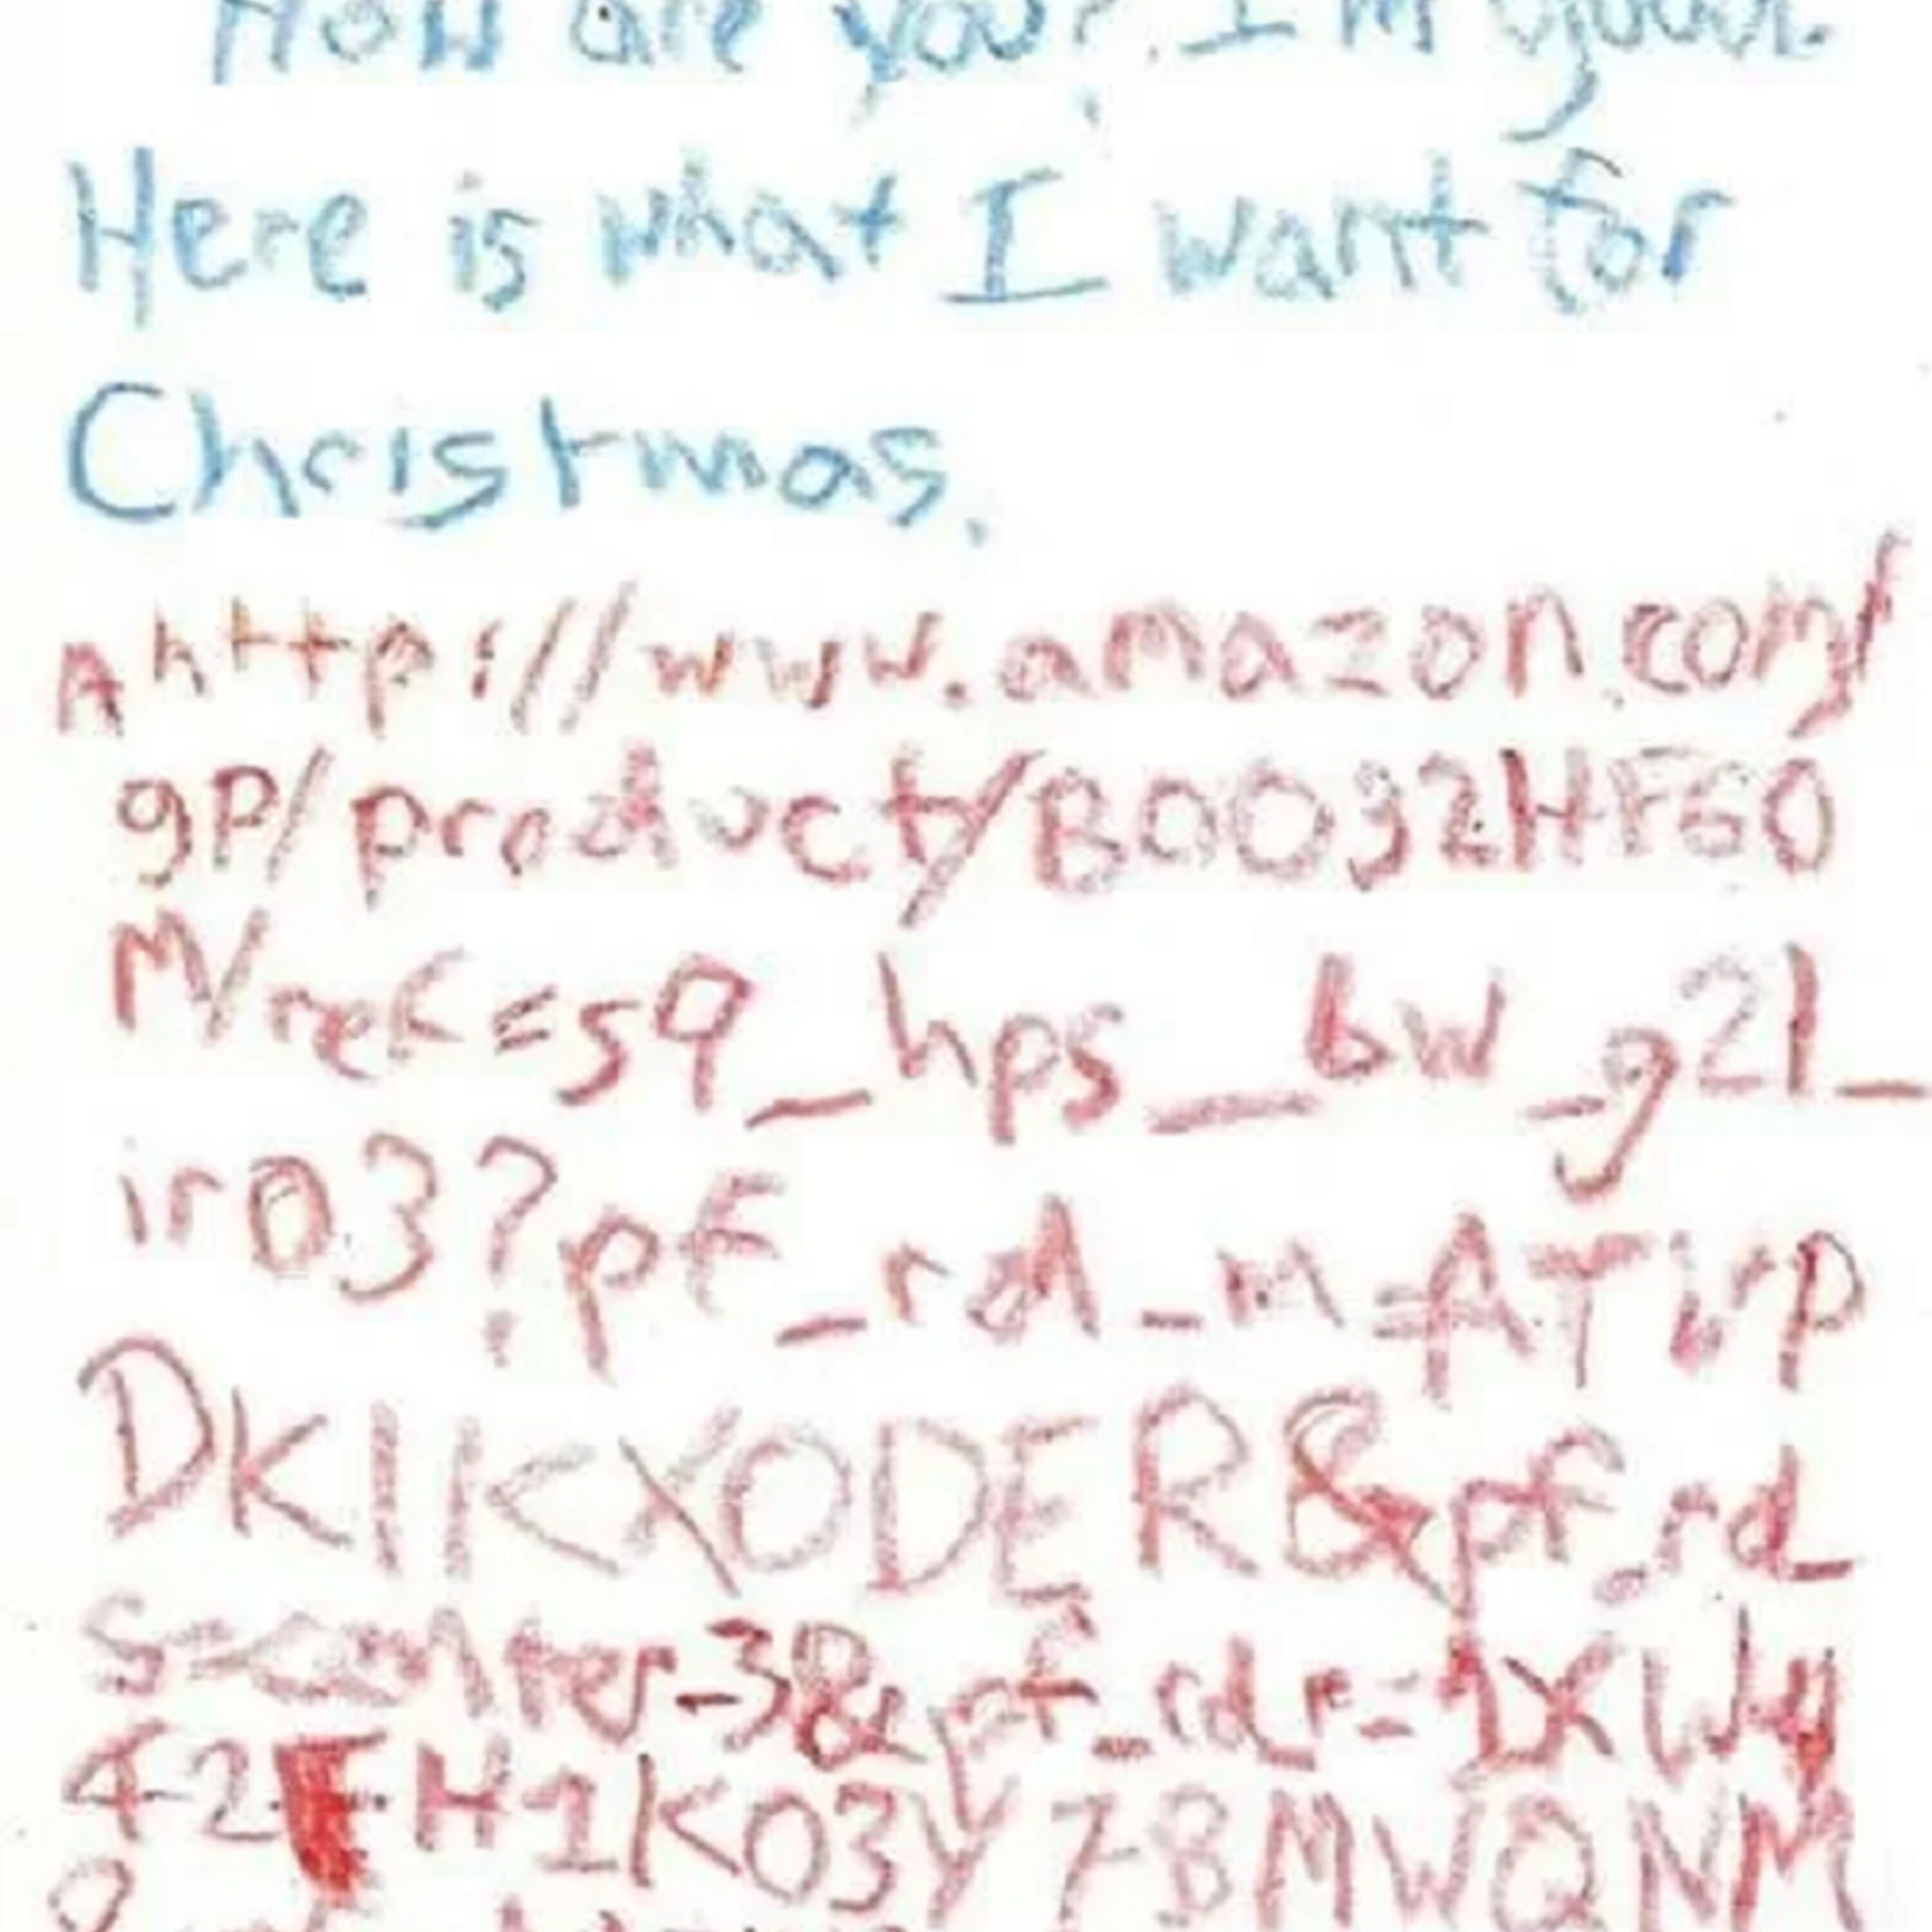 How are you? I'm good.
Here is what I want for
Christmas.
A http://www.amazon.com/
gp/product/B0032HF60
M/ref=s9_hps_bw_g21_
ir03?pf_rd_m=ATVP
DKIKX0DER&pf_rd_
s=center-3&pf_rd_r=1DXWH
42FH1K03Y7BMWQNM